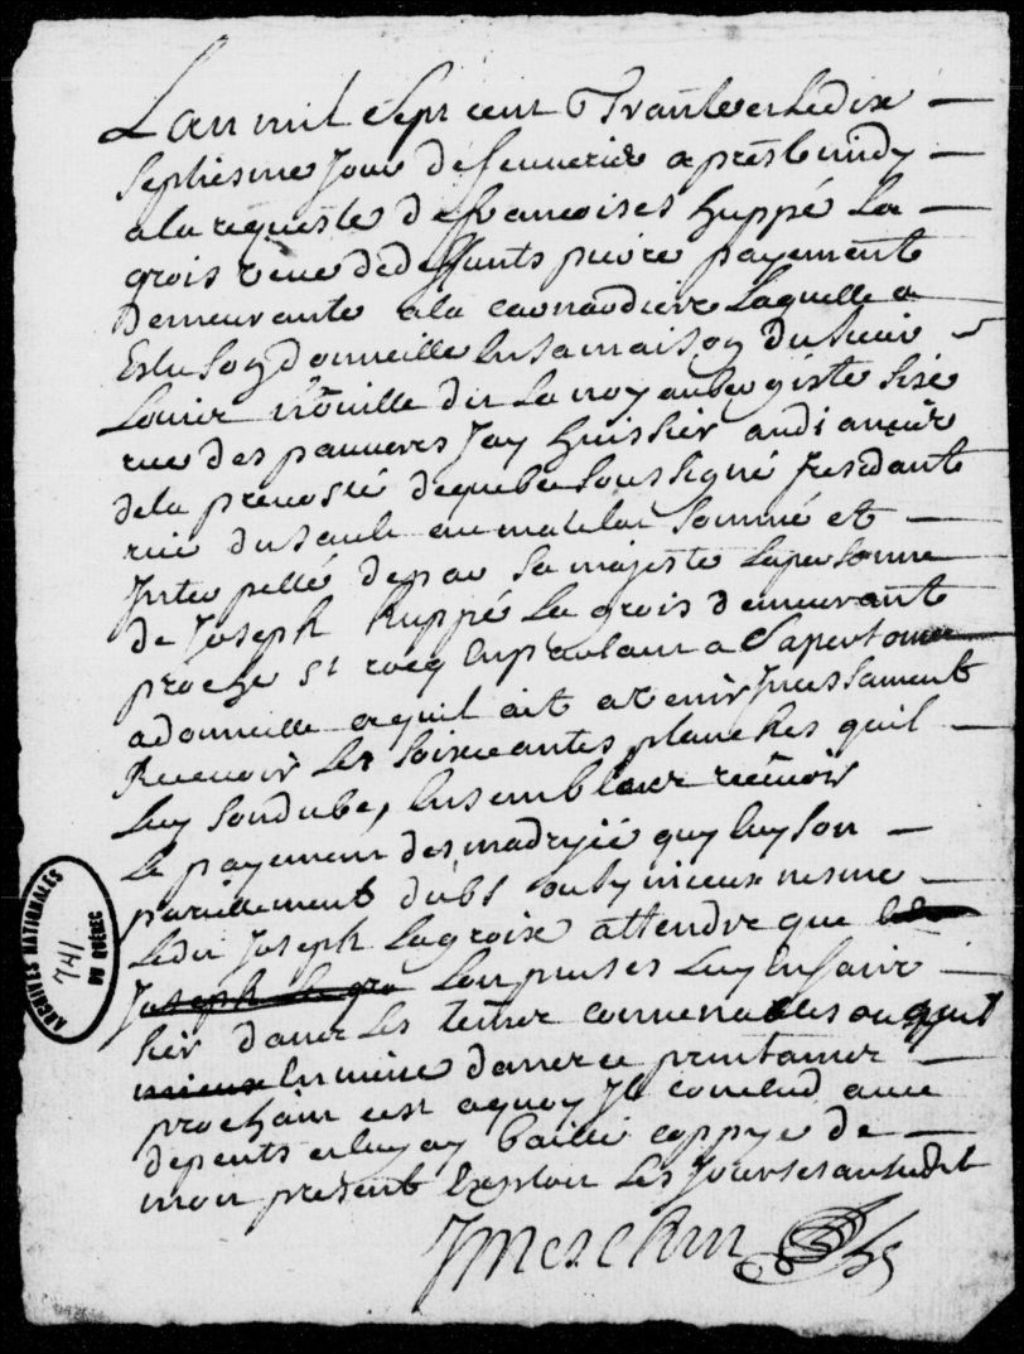 Lan mil Sept cent Trante et Le dix
Septiesme Jour de fevuerier apres le midy
a la requeste de francoises huppé La
grois veue de deffunts pierre payement
Demeurante a la cannardiere Laquelle a
Eslu Son domicille En sa maison du Sieur
Louis Noüille dit Lanoy aubergiste Sise
rue des pauuvres Jay huissier audiancier
de la preuosté de quebec Sous Signé Residante
rue du Sault au matelot Sommé et
Interpellé de par Sa majeste La personne
de Joseph huppé La grois demeurant
proche St rocq En parlant a Sa personne
a domicille a quil ait a venir Incessament
Receuoir Les Soixeantes planches quil
Luy Son dube, Ensemble receuoir
Le payement des madryié quy luy Son
pareillement dubs ou sy mieux nesme
Ledit Joseph Lagroix attendre que
Joseph La gro Lon puises Luy En faire
Sier dans Les temes conuenables ou quil
mieux En mise dans ce printamer
prochain cest a quoy Il conclud auec
depents et luy ay baillé coppye de
mon present Exploit Les Jours et an susdit
JMeschin
ARCHIVES NATIONALES
741
DU QUÉBEC